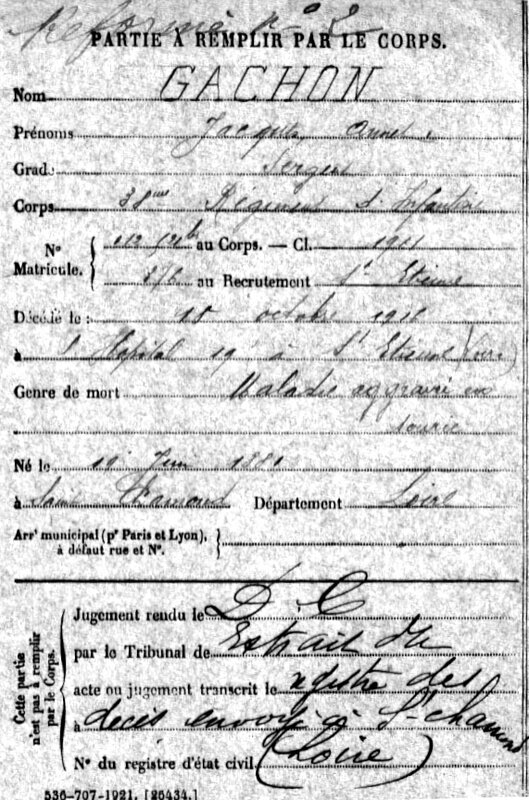 Réformé n° 2
PARTIE À REMPLIR PAR LE CORPS.
Nom GACHON
Prénoms Jacques
Grade Sergent
Corps 38me Régiment d'Infanterie
N° Matricule. au Corps. — Cl. 1911
au Recrutement St Etienne
Décédé le : octobre
à l'Hôpital 19 à St Etienne (Loire)
Genre de mort Maladie aggravée en
service
Né le Juin
à Saint Chamond Département Loire
Arrt municipal (pr Paris et Lyon),
à défaut rue et N°.
Cette partie n'est pas à remplir par le Corps.
Jugement rendu le D. C
par le Tribunal de Extrait du
acte ou jugement transcrit le registre des
à décès envoyé à St Chamond
N° du registre d'état civil (Loire)
536-707-1921. [26434.]